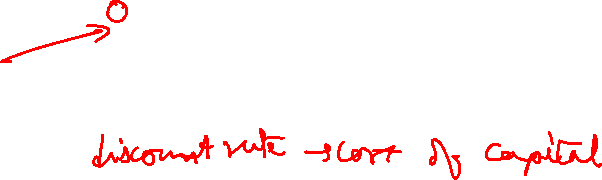 discount rate → cost of capital